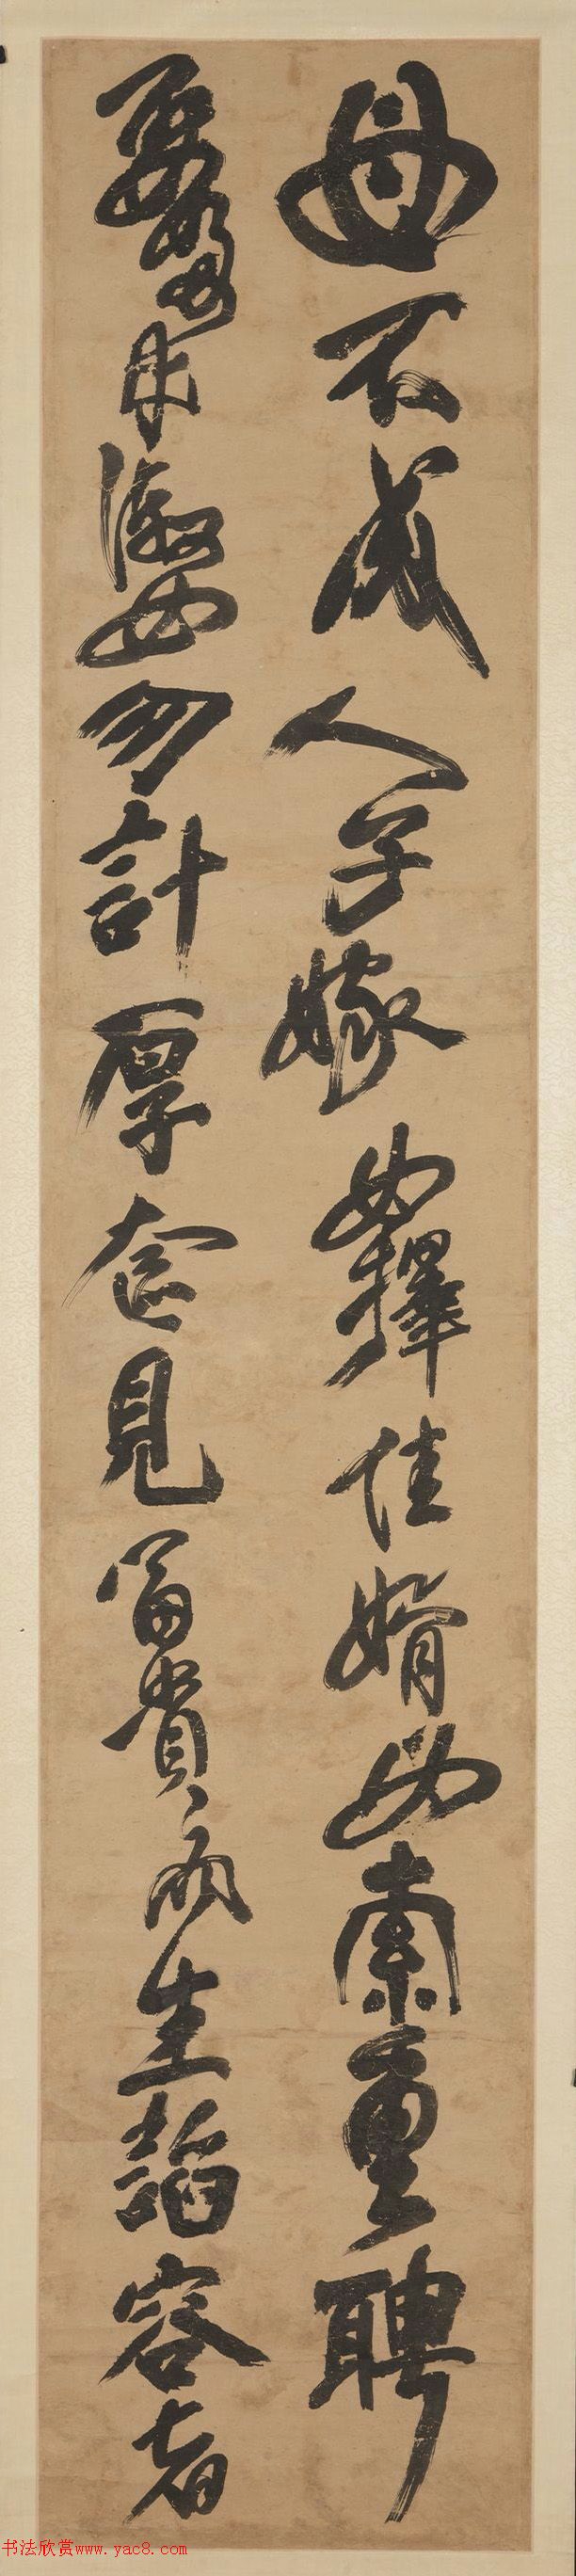 母不成人子嫁女擇佳婿毋索重聘
要娶求淑女勿計厚奩見富貴而生諂容者
书法欣赏www.yac8.com